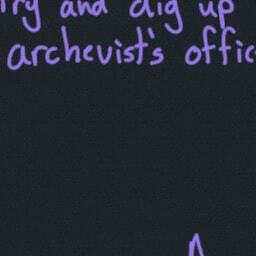 try and dig up
archevist's offic